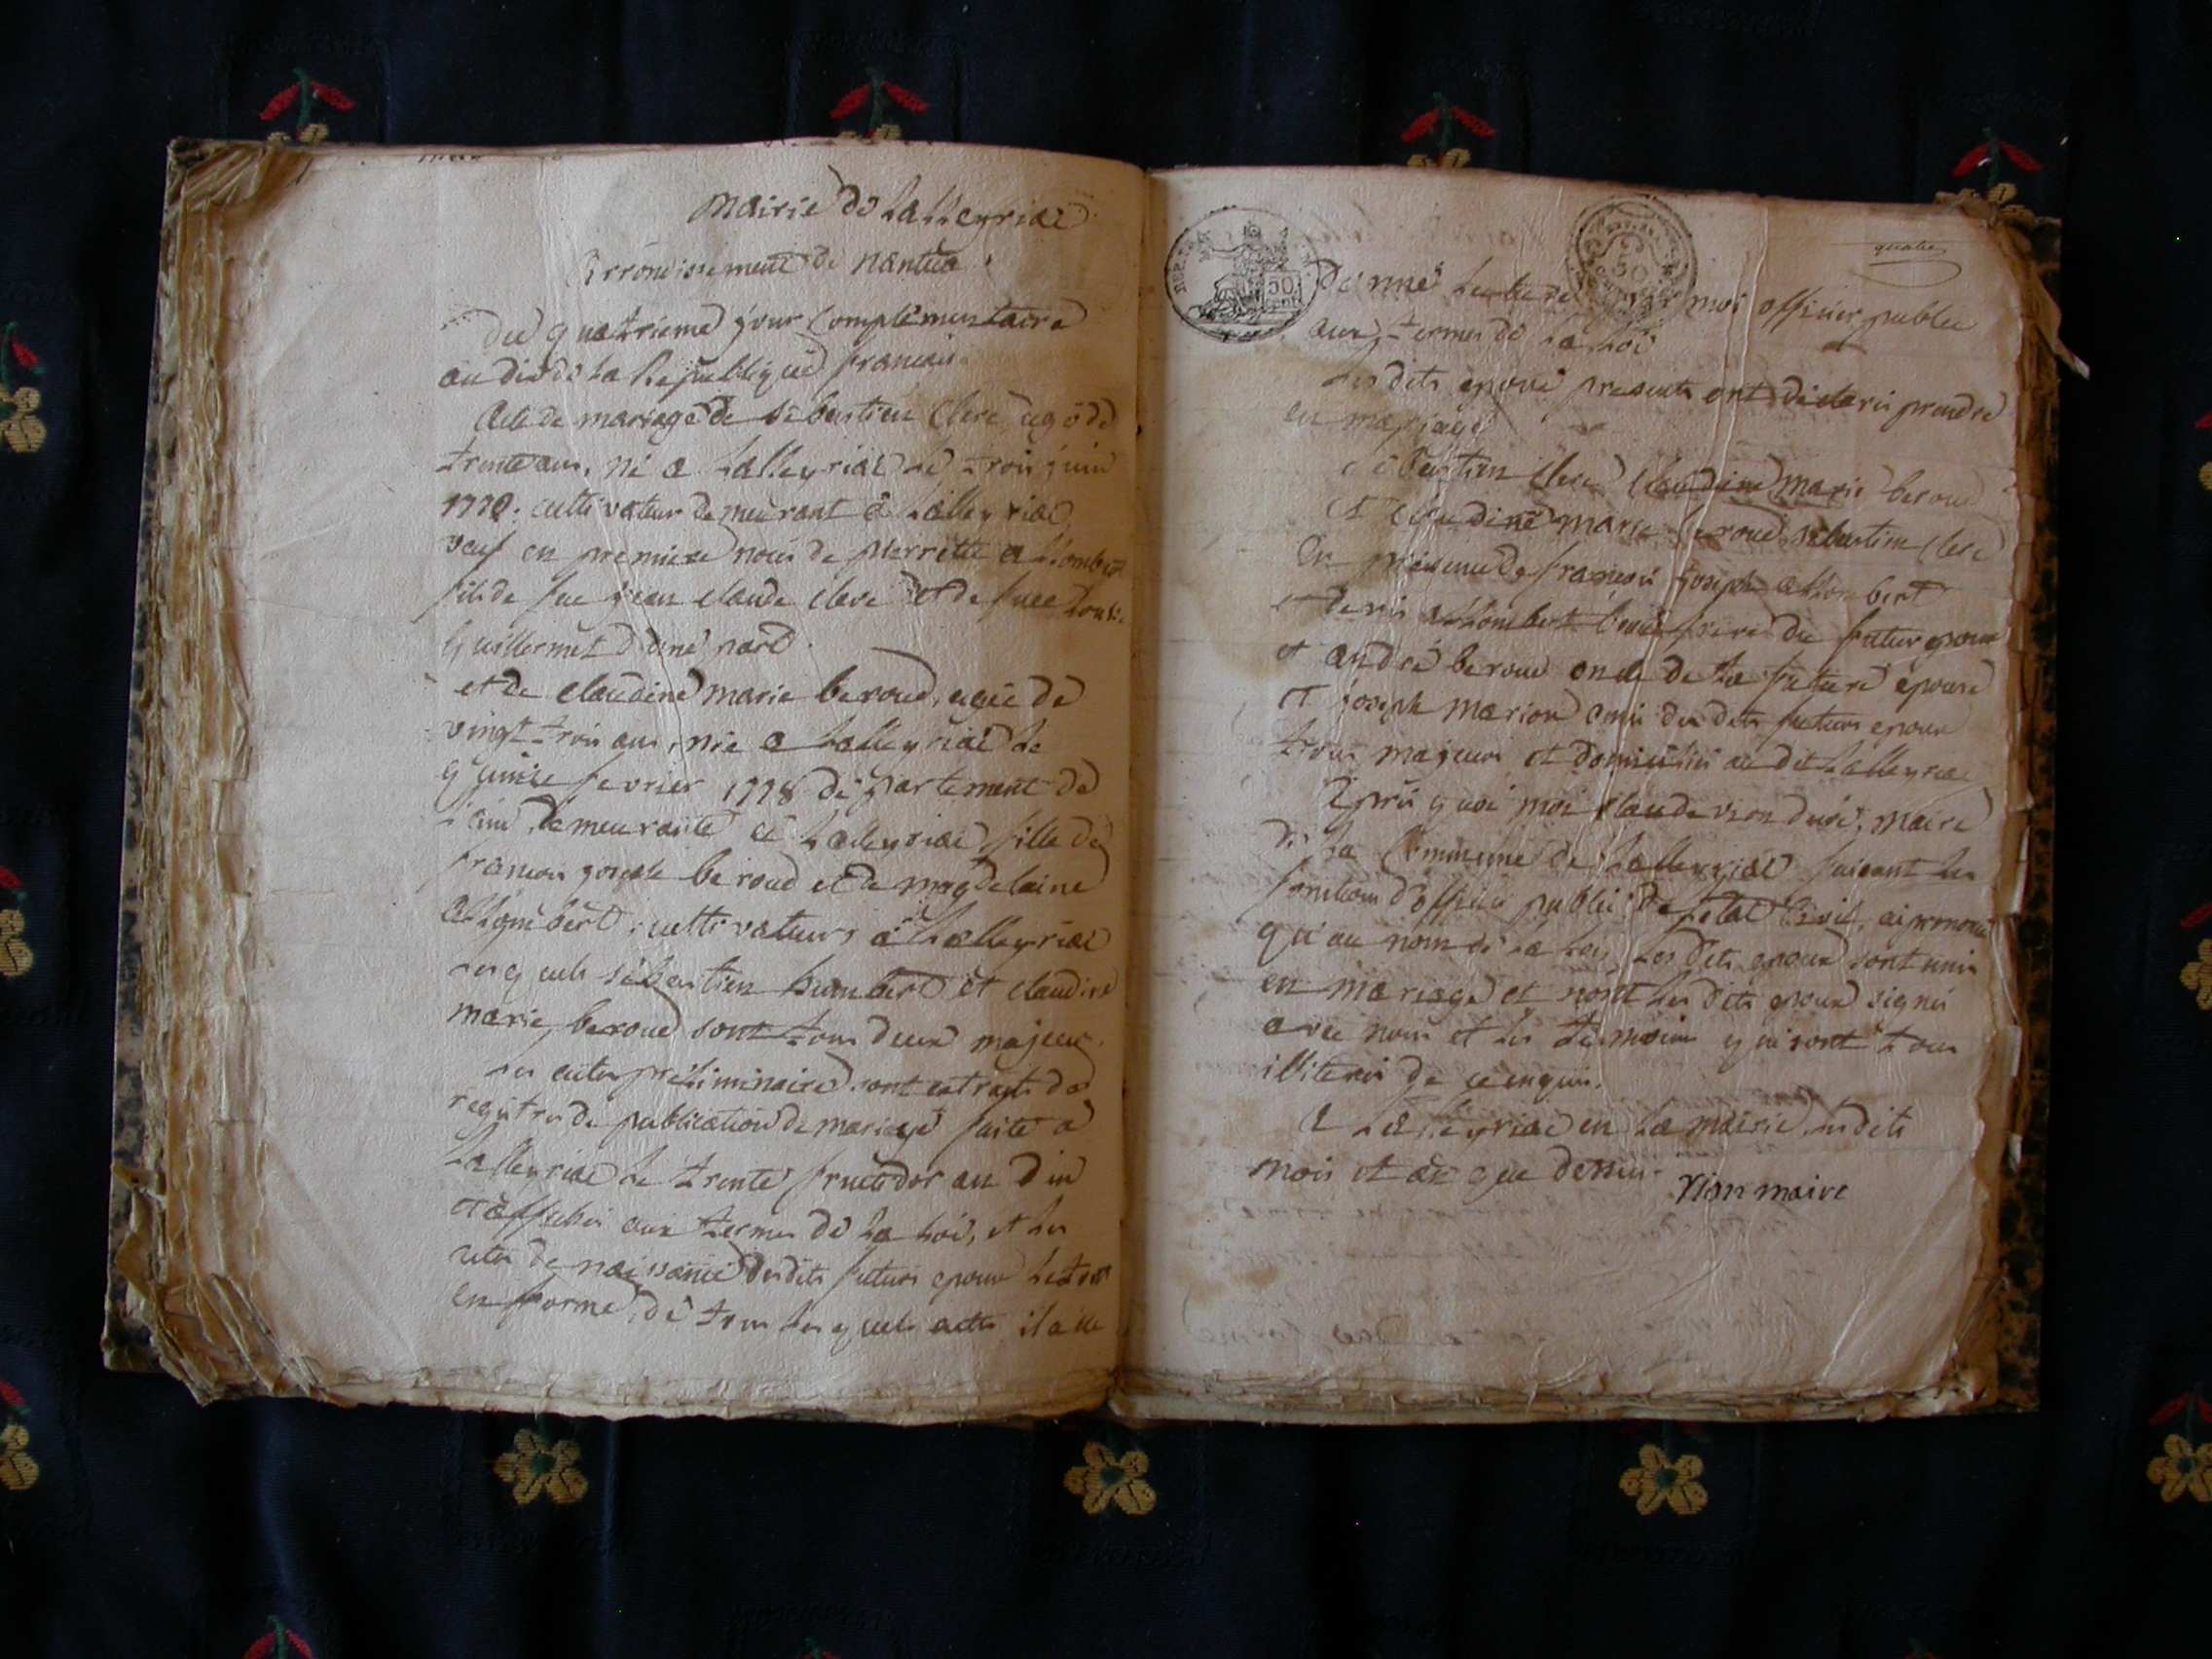 mairie de Lalleyriat
Arrondissement de Nantua
du quatrieme jour Complémentaire
an dix de la Republique francais
Acte de mariage de sébastien Clerc agé de
trente ans, né a Lalleyriat le trois juin
cultivateur demeurant a Lalleyriat
veuf en premiere noces de pierrette allombert
fils de feu jean claude clerc et de feue
guillermet d'une part.
et de claudine marie beroud, agée de
vingt-trois ans, née a Lalleyriat le
quinze fevrier 1778 département de
l'ain, demeurante a Lalleyriat fille de
francois joseph beroud et de magdelaine
allombert, cultivateurs a Lalleyriat
lesquels sébastien humbert et claudine
marie beroud sont tous deux majeurs.
les actes préliminaires sont extraits des
registres de publication de mariage faite a
Lalleyriat le trente fructidor an dix
et affichés aux termes de la loi, et les
actes de naissance desdits futurs epoux le tout
en forme, de tous lesquels actes il a été
quatre
50
donné lecture par moi officier public
aux termes de la loi
les dits epoux presents ont declarés prendre
en mariage
sébastien clerc claudine marie beroud
et claudine marie beroud sébastien clerc
en présence de françois joseph allombert
et denis allombert beau frere du futur epoux
et andré beroud oncle de la future épouse
et joseph marion ami des dits futurs epoux
tous majeurs et domiciliés au dit Lalleyriat
Après quoi moi claude vion maire
de la Commune de Lalleyriat faisant les
fonctions d'officier public de l'etat civil, ai prononcé
qu'au nom de la loi, les dits epoux sont unis
en mariage et n'ont les dits epoux signés
avec nous et les témoins qui sont tous
illiterés de ce enquis.
a Lalleyriat en la mairie, lesdits
mois et an que dessus.
Vion maire